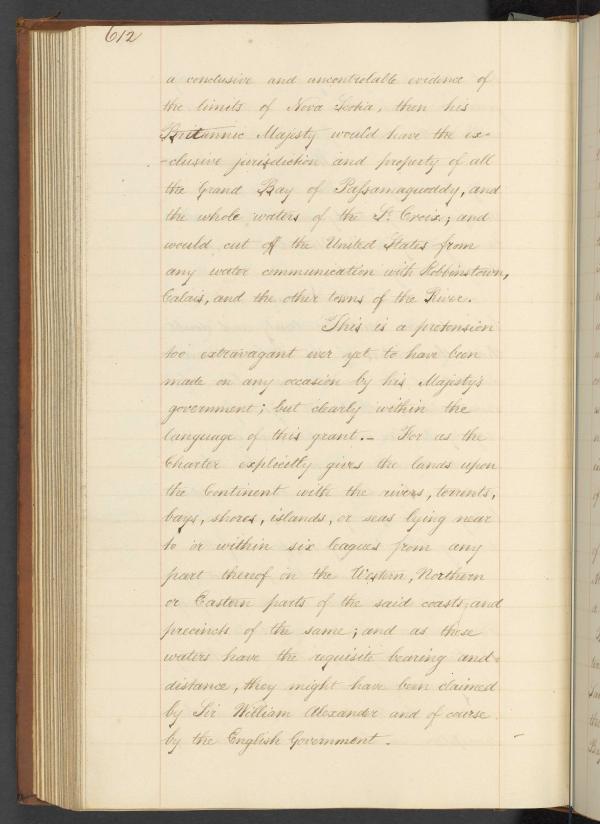 612
a conclusive and uncontrolable evidence of
the limits of Nova Scotia, then his
Britannic Majesty would have the ex-
-clusive jurisdiction and property of all
the Grand Bay of Passamaquoddy, and
the whole waters of the St. Croix; and
would cut off the United States from
any water communication with Robbinstown,
Calais, and the other towns of the River.
This is a pretension
too extravagant ever yet to have been
made on any occasion by his Majesty's
government; but clearly within the
language of this grant. - For as the
Charter explicitly gives the lands upon
the Continent with the rivers, torrents,
bays, shores, islands, or seas lying near
to or within six leagues from any
part thereof in the Western, Northern
or Eastern parts of the said coasts, and
precincts of the same; and as these
waters have the requisite bearing and
distance, they might have been claimed
by Sir William Alexander and of course
by the English Government.